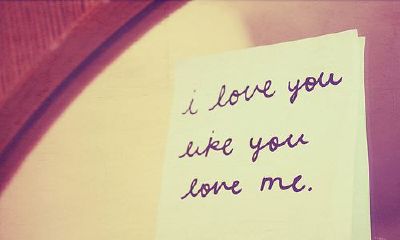 i love you
like you
love me.